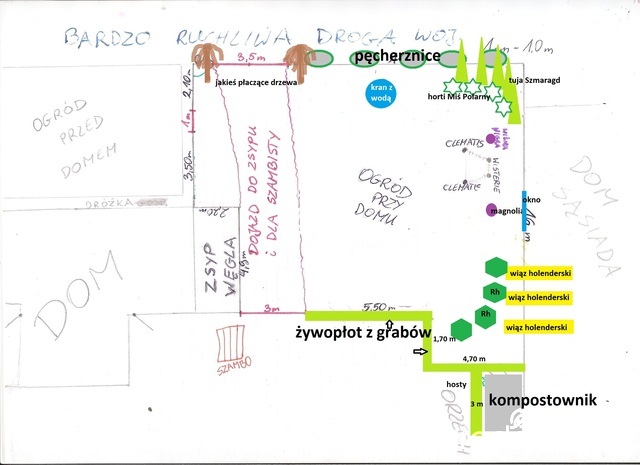 BARDZO RUCHLIWA DROGA WOJ.
pęcherznice
1 m - 1.0m
3,5m
jakieś płaczące drzewa
tuja Szmaragd
2,10m
kran z wodą
horti Miś Polarny
OGRÓD
PRZED
DOMEM
1m
3,50m
CLEMATIS
WISTERIE
CLEMATIC
OGRÓD
PRZY
DOMU
DOJAZD DO ZSYPU
i DLA SZAMBISTY
DOM
SĄSIADA
okno
magnolia
16 m
DRÓŻKA
220m
ZSYP
WĘGLA
4,9m
DOM
wiąz holenderski
Rh
wiąz holenderski
Rh
wiąz holenderski
3m
5.50m
żywopłot z grabów
1,70 m
SZAMBO
4,70 m
hosty
kompostownik
3 m
ORZECH